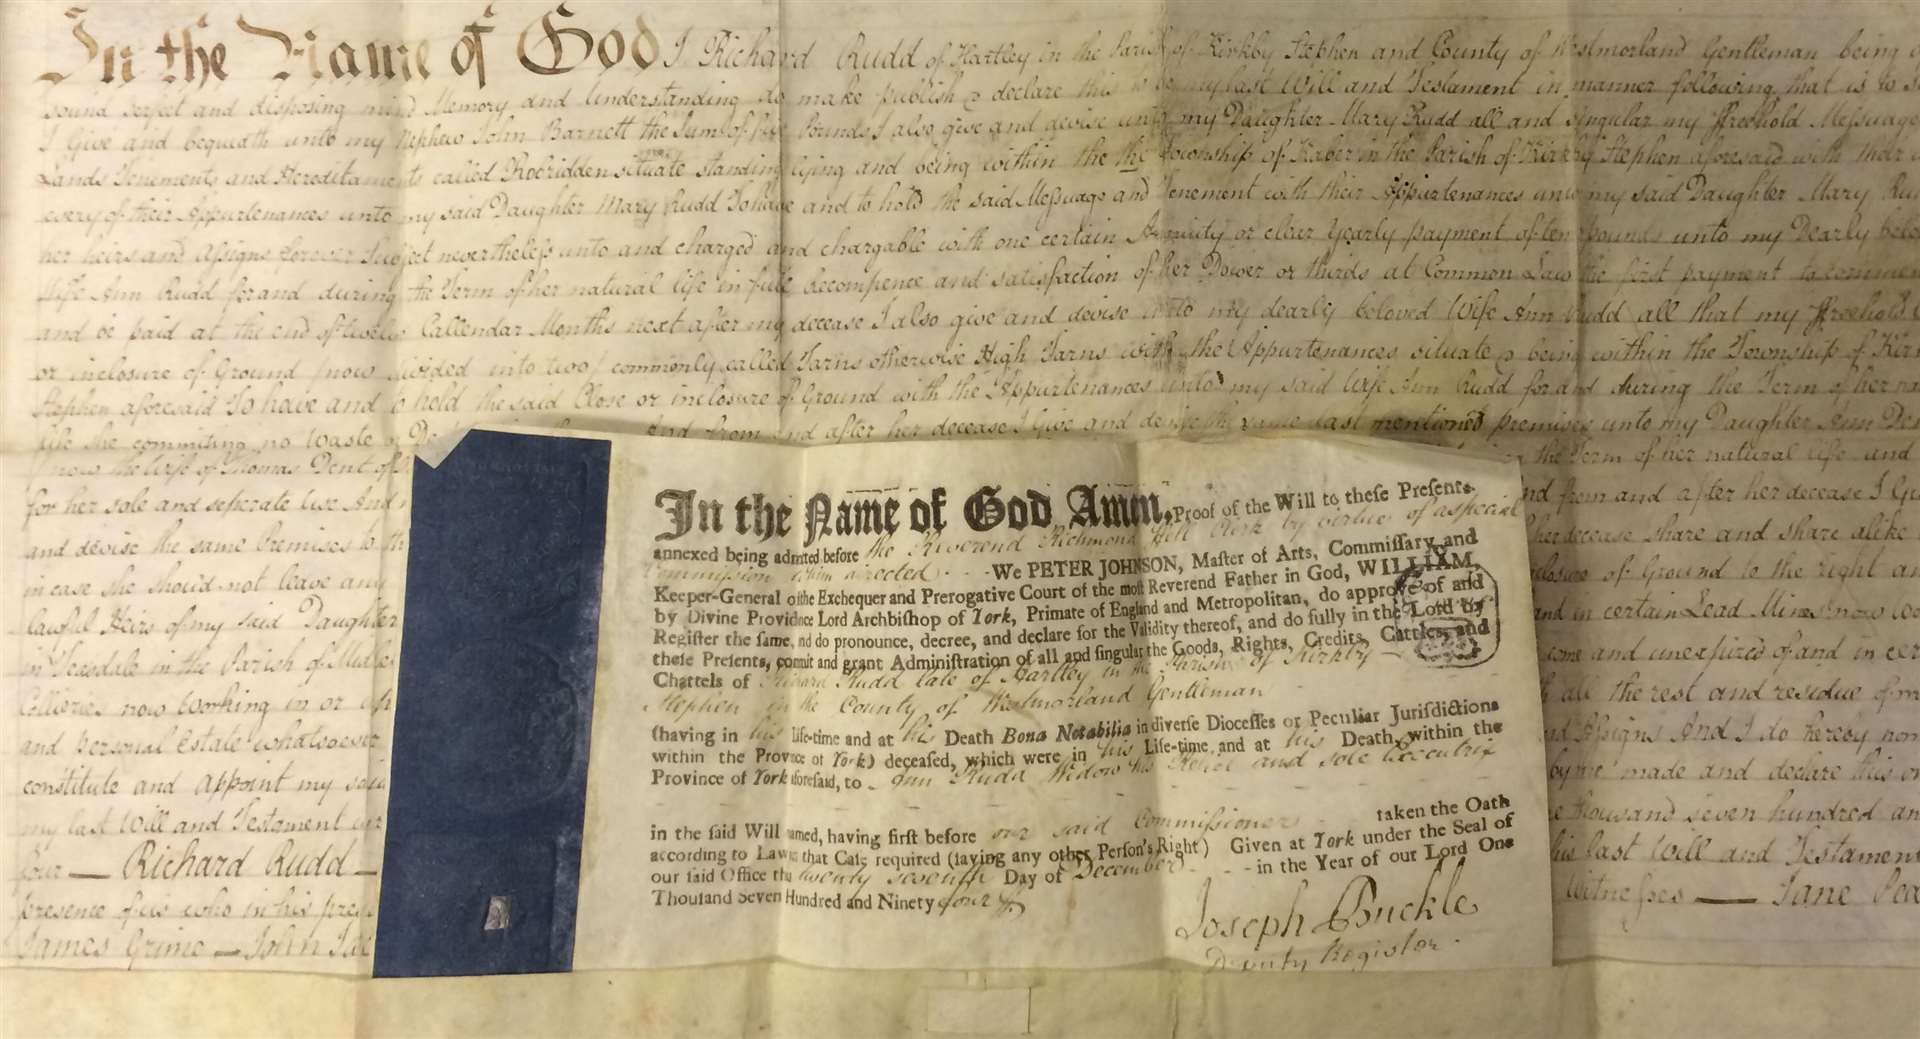 In the Name of God I Richard Rudd of Hartley in the Parish of Kirkby Stephen and County of Westmorland Gentleman being
sound perfect and disposing mind Memory and Understanding do make publish & declare this to be my last Will and Testament in manner following that is to
I Give and bequath unto my Nephew John Barnett the Sum of five Pounds I also give and devise unto my Daughter Mary Rudd all and singular my Freehold Messuage
Lands Tenements and Hereditaments called Rokridden situate standing lying and being within the the Township of Kaber in the Parish of Kirkby Stephen aforesaid with their
every of their Appurtenances unto my said Daughter Mary Rudd To have and to hold the said Messuage and Tenement with their Appurtenances unto my said Daughter Mary
her heirs and Assigns forever Subject nevertheless unto and charged and chargable with one certain Annuity or clear Yearly payment of ten pounds unto my Dearly
Wife Ann Rudd for and during the Term of her natural life in full Recompence and satisfaction of her Dower or thirds at Common Law the first payment to
and be paid at the end of twelve Callendar Months next after my decease I also give and devise unto my dearly beloved Wife Ann Rudd all that my Freehold
or inclosure of Ground (now divided into two) commonly called Tarns otherwise High Tarns with the Appurtenances situate & being within the Township of
Stephen aforesaid To have and to hold the said Close or inclosure of Ground with the Appurtenances unto my said Wife Ann Rudd for and during the Term of her
life she commiting no Waste And from and after her decease I Give and devise the same last mentioned premises unto my Daughter Ann
(now the Wife of Thomas Dent of the Term of her natural life and
for her sole and seperate Use And and from and after her decease I
and devise the same Premises to her decease share and share alike
in case she should not leave any of Ground to the right
lawful Heirs of my said Daughter and in certain Lead Mines now
in Teesdale in the Parish of and unexpired of and in
Collieries now Working in or all the rest and residue of
and personal Estate whatsoever and Assigns And I do hereby
constitute and appoint my said by me made and declare this
my last Will and Testament thousand seven hundred
four — Richard Rudd — last Will and Testament
presence of us who in his Witnesses — Jane
James Grime — John
In the Name of God Amen. Proof of the Will to these Presents
annexed being admitted before the Reverend Richmond Clerk by virtue of a special
Commission to him directed We PETER JOHNSON, Master of Arts, Commissary and
Keeper-General of the Exchequer and Prerogative Court of the most Reverend Father in God, WILLIAM,
by Divine Providence Lord Archbishop of York, Primate of England and Metropolitan, do approve of and
Register the same, and do pronounce, decree, and declare for the Validity thereof, and do fully in the Lord by
these Presents, commit and grant Administration of all and singular the Goods, Rights, Credits, Cattles, and
Chattels of Richard Rudd late of Hartley in the Parish of Kirkby
Stephen in the County of Westmorland Gentleman
(having in his Life-time and at his Death Bona Notabilia in diverse Diocesses or Peculiar Jurisdictions
within the Province of York) deceased, which were in his Life-time, and at his Death, within the
Province of York aforesaid, to Ann Rudd Widow his Relict and sole Executrix
in the said Will named, having first before our said Commissioner taken the Oath
according to Law in that Case required (saving any other Person's Right) Given at York under the Seal of
our said Office the twenty seventh Day of December in the Year of our Lord One
Thousand Seven Hundred and Ninety four
Joseph Buckle
Deputy Register